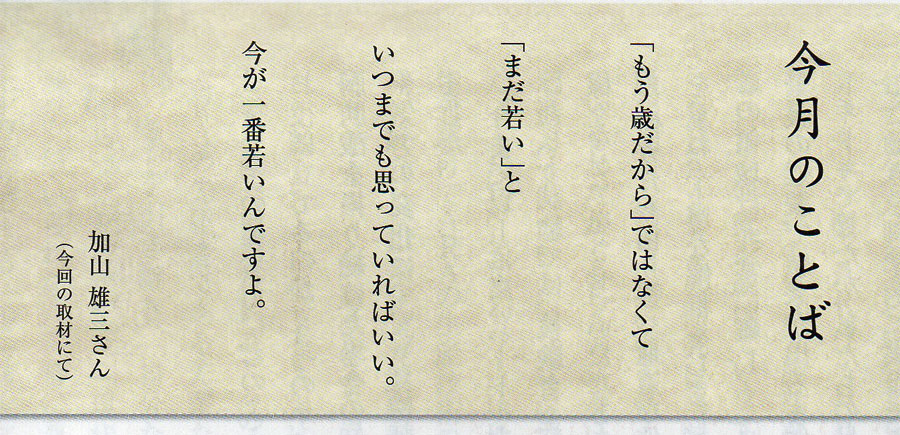 今月のことば
「もう歳だから」ではなくて
「まだ若い」と
いつまでも思っていればいい。
今が一番若いんですよ。
加山 雄三さん
（今回の取材にて）